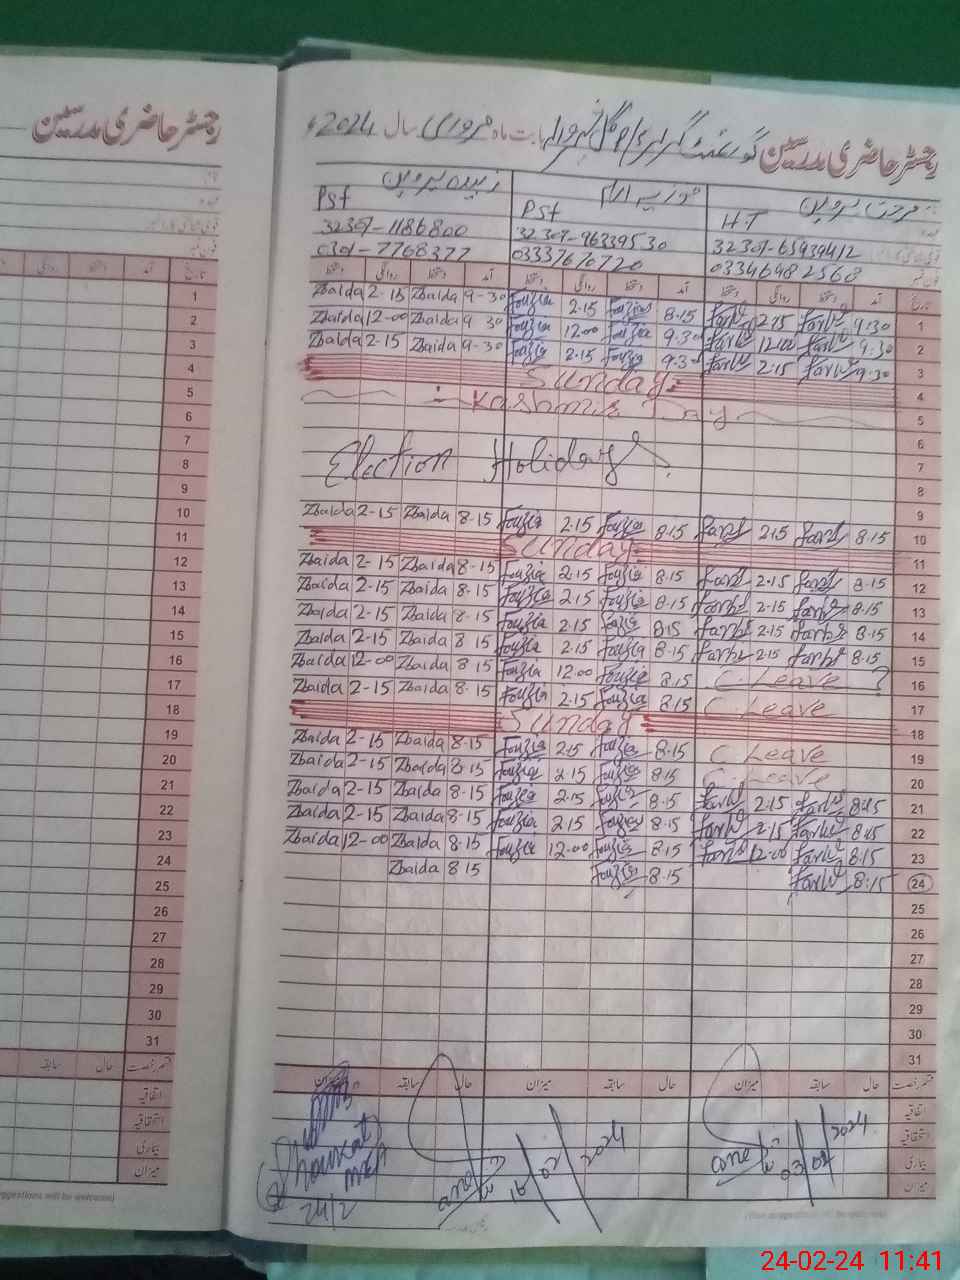 رجسٹر حاضری مدرسین
رجسٹر حاضری مدرسین گورنمنٹ گرلز بابت ماہ فروری سال 2024ء
زبیدہ پروین فوزیہ ارم فرحت پروین
Pst PSt HT
32304-1186800 32304-9633953 0 32304-6593941 2
0301-7768377 03337670720 03346982568
دستخط روانگی دستخط آمد دستخط روانگی دستخط آمد دستخط روانگی دستخط آمد تاریخ
1 Zbaida 2-15 Zbaida 9-30 Fouzia 2.15 Fouzia 8.15 Farhat 2.15 Farhat 9.30 1
2 Zbaida 12-00 Zbaida 9 30 Fouzia 12.00 Fouzia 9.30 Farhat 12.00 Farhat 9.30 2
3 Zbaida 2-15 Zbaida 9-30 Fouzia 2.15 Fouzia 9.30 Farhat 2.15 Farhat 9.30 3
4 Sunday 4
5 Kashmir Day 5
6 6
7 Election Holidays 7
8 8
9 9
10 Zbaida 2-15 Zbaida 8.15 Fouzia 2.15 Fouzia 8.15 Farhat 2.15 Farhat 8.15 10
11 Sunday 11
12 Zbaida 2-15 Zbaida 8-15 Fouzia 2.15 Fouzia 8.15 Farhat 2.15 Farhat 8.15 12
13 Zbaida 2-15 Zbaida 8.15 Fouzia 2.15 Fouzia 8.15 Farhat 2.15 Farhat 8.15 13
14 Zbaida 2-15 Zbaida 8.15 Fouzia 2.15 Fouzia 8.15 Farhat 2.15 Farhat 8.15 14
15 Zbaida 2-15 Zbaida 8 15 Fouzia 2.15 Fouzia 8.15 Farhat 2.15 Farhat 8.15 15
16 Zbaida 12-00 Zbaida 8 15 Fouzia 12.00 Fouzia 8.15 C. Leave 16
17 Zbaida 2-15 Zbaida 8.15 Fouzia 2.15 Fouzia 8.15 C. Leave 17
18 Sunday 18
19 Zbaida 2-15 Zbaida 8.15 Fouzia 2.15 Fouzia 8.15 C Leave 19
20 Zbaida 2-15 Zbaida 8.15 Fouzia 2.15 Fouzia 8.15 C. Leave 20
21 Zbaida 2-15 Zbaida 8.15 Fouzia 2.15 Fouzia 8.15 Farhat 2.15 Farhat 8:15 21
22 Zbaida 2-15 Zbaida 8.15 Fouzia 2.15 Fouzia 8.15 Farhat 2.15 Farhat 8.15 22
23 Zbaida 12-00 Zbaida 8.15 Fouzia 12.00 Fouzia 8.15 Farhat 12.00 Farhat 8.15 23
24 Zbaida 8 15 Fouzia 8.15 Farhat 8.15 24
25 25
26 26
27 27
28 28
29 29
30 30
31 31
سابقہ حال میزان سابقہ حال میزان سابقہ حال قسم رخصت
اتفاقیہ
استحقاقیہ
بیماری
میزان
Shoukat
MEA
24/2
16/02/2024
03/02/2024
24-02-24 11:41